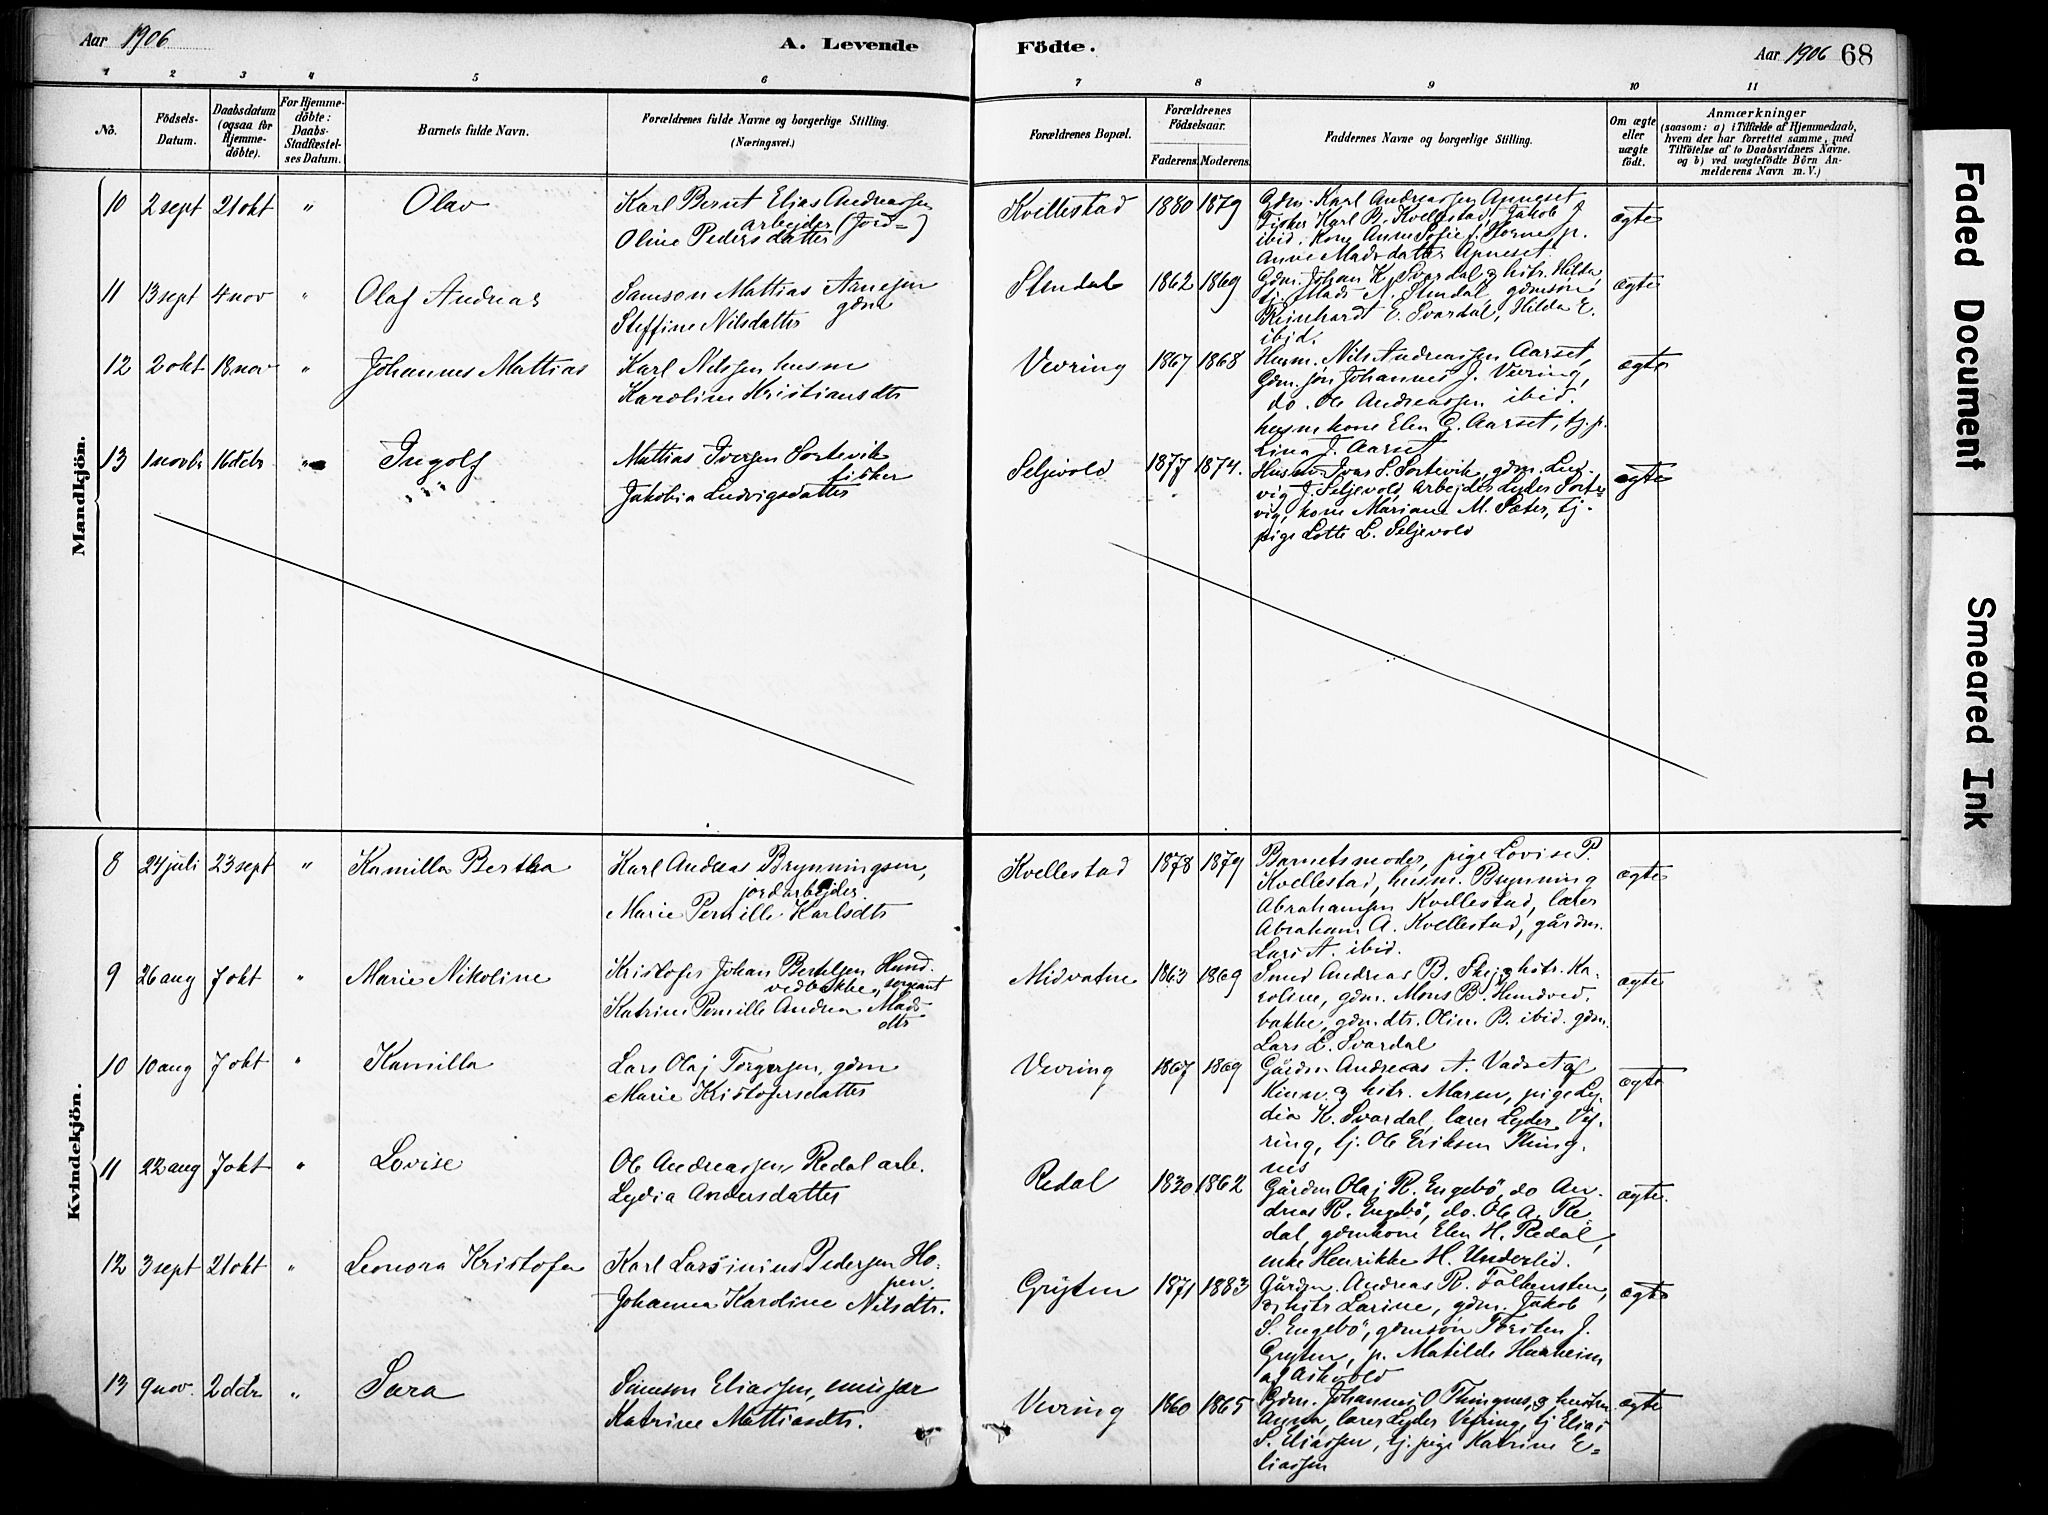 Aar 1906
A. Levende
Födte.
Aar 1906 68
1 2 3 4 5 6 7 8 9 10 11
Nô.
Födsels-Datum.
Daabsdatum (ogsaa for Hjemme-döbte).
For Hjemme-döbte: Daabs-Stadfæstel-ses Datum.
Barnets fulde Navn.
Forældrenes fulde Navne og borgerlige Stilling.
(Næringsvei.)
Forældrenes Bopæl.
Forældrenes Födselsaar.
Faderens. Moderens.
Faddernes Navne og borgerlige Stilling.
Om ægte eller uægte födt.
Anmærkninger
(saasom: a) i Tilfælde af Hjemmedaab,
hvem der har forrettet samme, med
Tilföielse af to Daabsvidners Navne.
og b) ved uægtefödte Börn An-
melderens Navn m. V.)
Mandkjön.
10 2 sept 21 okt " Olav
Karl Bernt Elias Andreassen
arbejder (Jord-)
Oline Pedersdatter
Kvellestad 1880 1879
Gdm. Karl Andreassen Apneset
Fisker Karl B. Kvellestad, Jakob J.
ibid. Kone Anne Sofie J. Hornes, p.
Anne Madsdatter Apneset.
ægte
11 13 sept 4 nov " Olaf Andreas
Samson Mattias Arnesen
gdm
Steffine Nilsdatter
Stendal 1862 1869
Gdm. Johan K. Svardal & hstr. Hilda,
tj. Mads N. Stendal, gdmsøn
Reinhardt E. Svardal, Hilda E.
ibid.
ægte
12 2 okt 18 nov " Johannes Mattias
Karl Nilssen husm
Karoline Kristiansdtr
Vevring 1867 1868
Husm. Nils Andreassen Aarset,
Gdm. søn Johannes J. Vevring,
do. Ole Andreassen ibid.
husm kone Elen G. Aarset, tj. p.
Lina J. Aarset
ægte
13 1 novbr 16 debr " Ingolf
Mattias Iversen Sortevik
fisker
Jakobia Ludvigsdatter
Seljevold 1877 1874.
Husm Ivar S. Sortevik, gdm. Lud-
vig J. Seljevold, Arbejder Lyder Sorte-
vig, kone Mariane M. Sæter, tj.
pige Lotte L. Seljevold
ægte
Kvindekjön.
8 24 juli 23 sept " Kamilla Bertha
Karl Andreas Brynningsen,
jordarbejder.
Marie Pernille Karlsdtr
Kvellestad 1878 1879
Barnets moder, pige Lovise P.
Kvellestad, husm. Brynning
Abrahamsen Kvellestad, lærer
Abraham A. Kvellestad, gårdm.
Lars A. ibid.
ægte
9 26 aug 7 okt " Marie Nikoline
Kristofer Johan Bertelsen Hund-
vedbakke, sergeant
Katrine Pernille Andrea Mads-
dtr
Midvatne 1863 1869
Smed Andreas B. Skej & hstr. Ka-
roline, gdm. Mons B. Hundved-
bakke, gdm. dtr. Oline B. ibid. gdm.
Lars L. Svardal
ægte
10 10 aug 7 okt " Kamilla
Lars Olaj Torgersen, gdm
Marie Kristofersdatter
Vevring 1867 1869
Gårdm. Andreas A. Vadset af
Kinn & hstr. Maren, pige Ly-
dia K. Svardal, lærer Lyder Vev-
ring, tj. Ole Eriksen Thing-
nes
ægte
11 22 aug 7 okt " Lovise
Ole Andreassen Redal arb.
Lydia Andersdatter
Redal 1830 1862
Gårdm Olaj R. Engebö, do An-
dreas R. Engebö, do. Ole A. Re-
dal, gdmkone Elen H. Redal,
enke Henrikke H. Underlid.
ægte.
12 3 sept 21 okt " Leonora Kristofa
Karl Larsinius Pedersen Ho-
pen
Johanna Karoline Nilsdtr.
Gryten 1871 1883
Gårdm. Andreas R. Falkensten,
& hstr Larine, gdm. Jakob
S. Engebö, gdmsøn Torsten J.
Gryten, p. Matilde Haaheim
af Askvold
ægte
13 9 nov. 2 debr " Sara
Simson Eliassen,
Katrine Mattiasdtr.
Vevring 1860 1865
Gdm. Johannes O Thingnes, & hustru
Anna, lærer Lyder Vevring, tj Elias
S. Eliassen, tj. pige Katrine E-
liassen
ægte
Faded Document
Smeared Ink